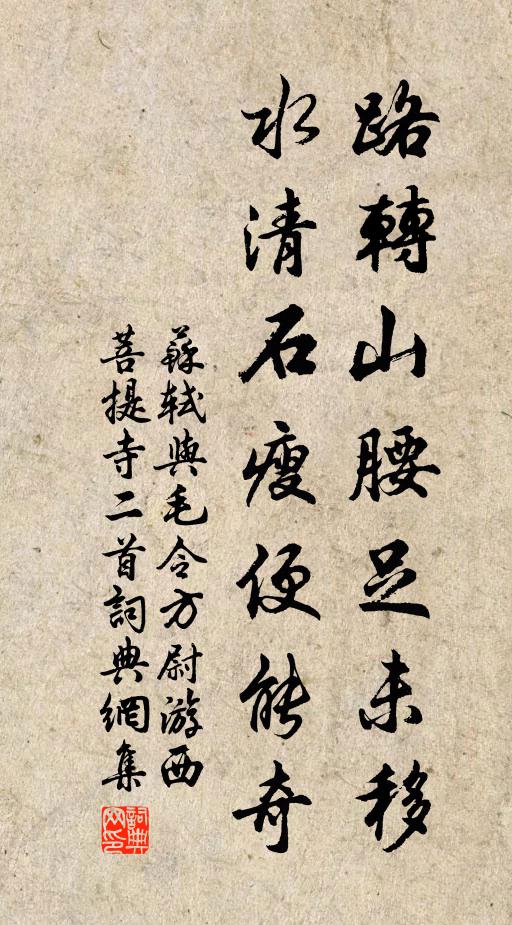 路轉山腰足未移
水清石瘦便能奇
蘇軾與毛令方尉游西
菩提寺二首詞典網集
詞典
网印